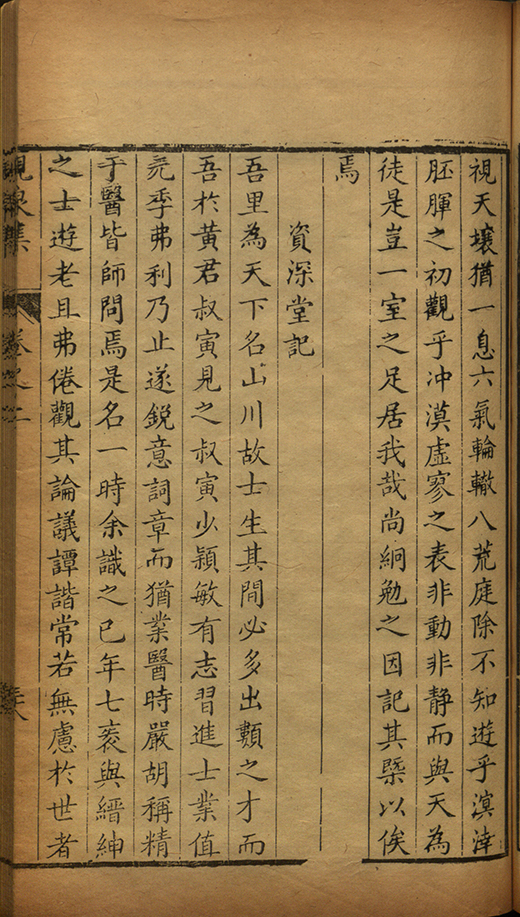 視天壤猶一息六氣輪轍八荒庭除不知遊乎溟涬
胚腪之初觀乎冲漠虛寥之表非動非静而與天為
徒是豈一室之足居我哉尚絅勉之因記其槩以俟
焉
資深堂記
吾里為天下名山川故士生其間必多出類之才而
吾於黃君叔寅見之叔寅少穎敏有志習進士業值
元季弗利乃止遂銳意詞章而猶業醫時嚴胡稱精
于醫皆師問焉是名一時余識之已年七袠與縉紳
之士遊老且弗倦觀其論議譚諧常若無慮於世者
泉集 卷之二